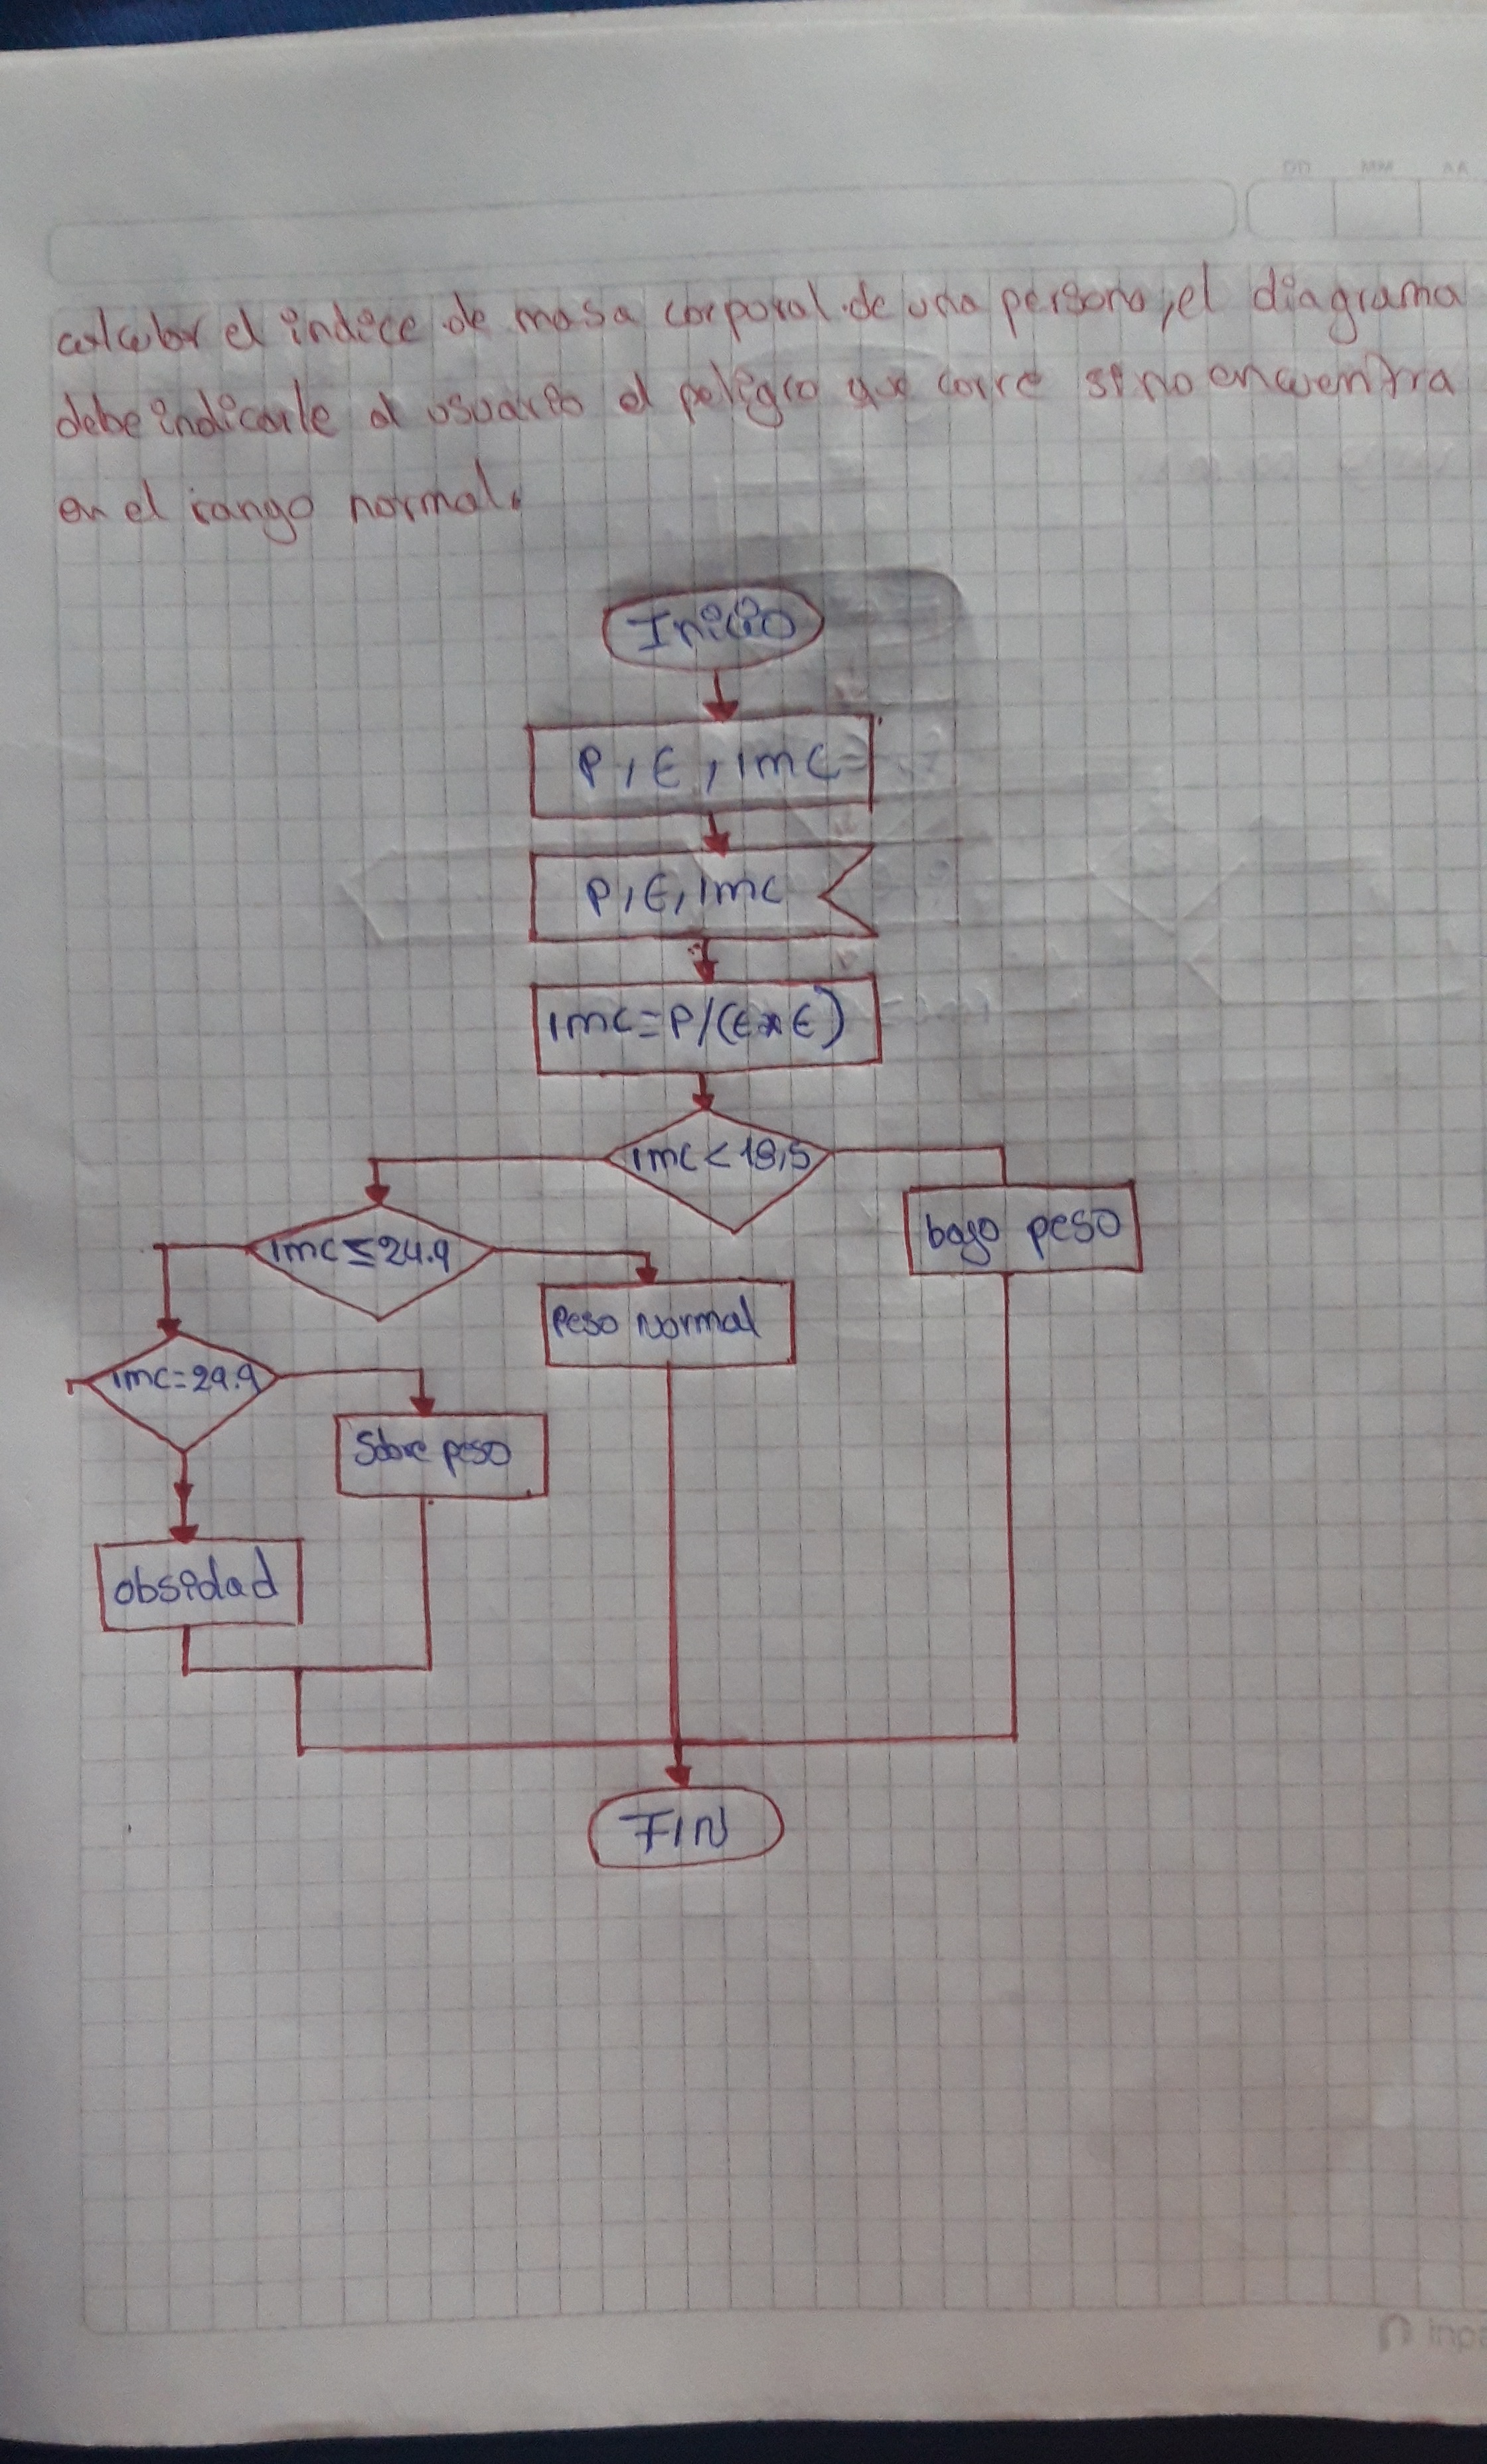 DD MM AA
calcular el indice de masa corporal de una persona, el diagrama
debe indicarle al usuario el peligro que corre si no encuentra
en el rango normal.
Inicio
P, E, imc =
P, E, imc
imc=P/(E*E)
imc<18,5
bajo peso
imc≤24.9
Peso Normal
imc=29.9
Sobre peso
obsidad
FIN